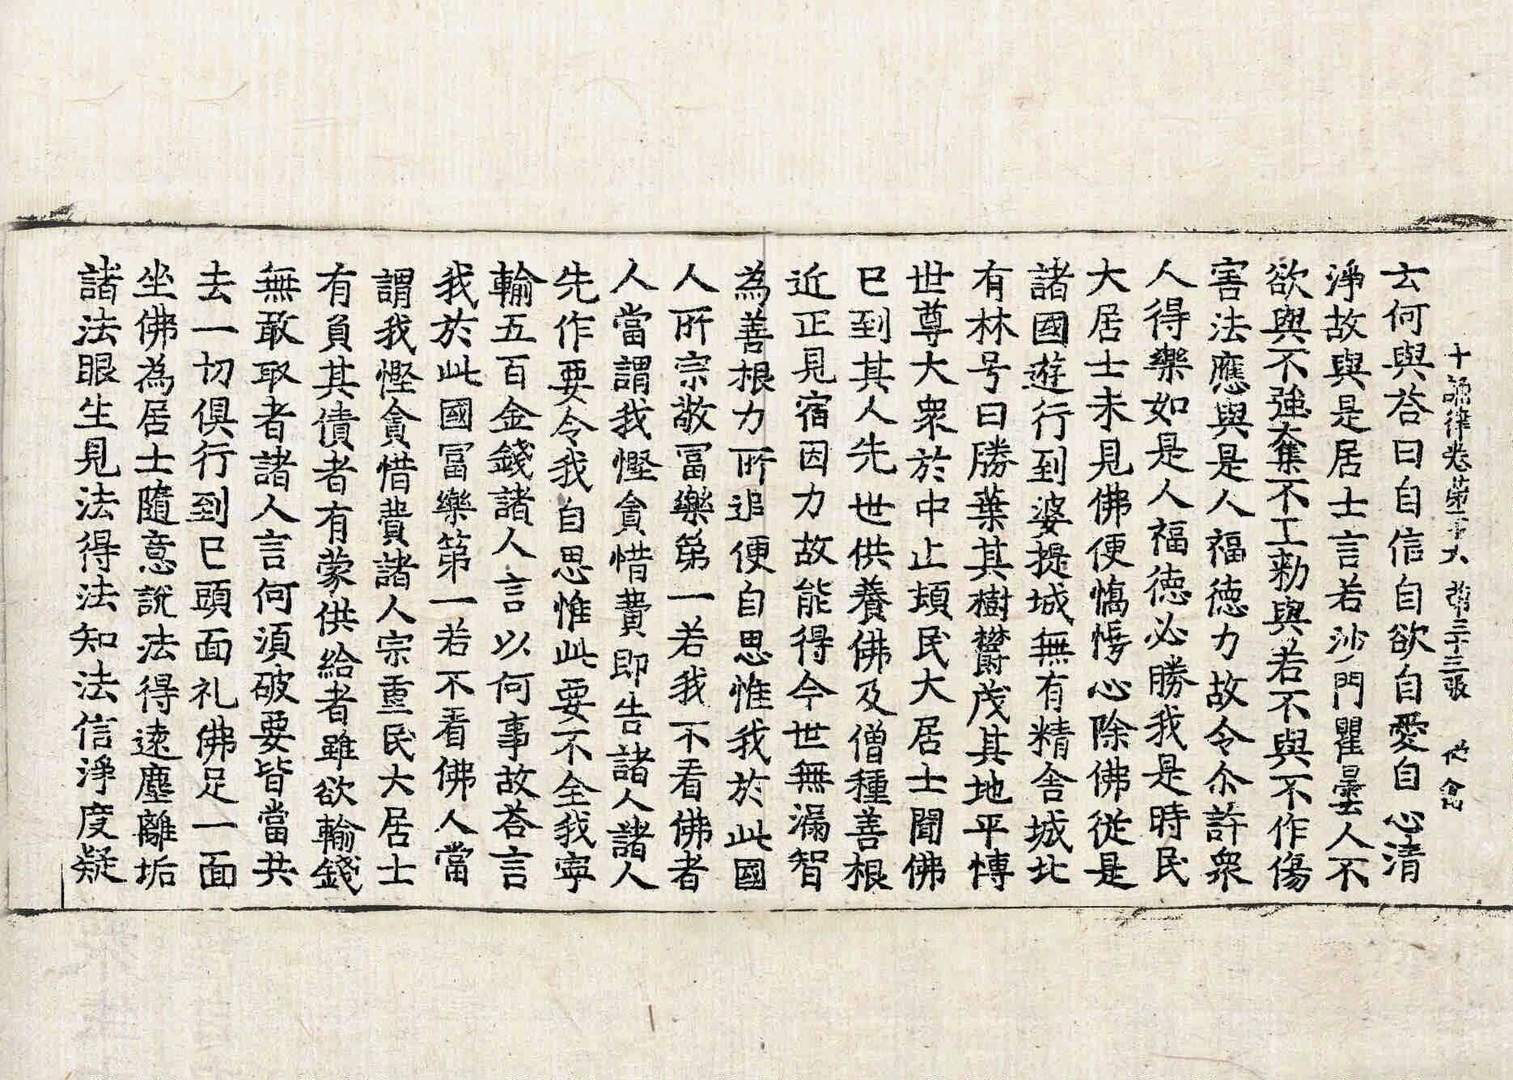 十誦律卷第二十六 第三十三張 他禽
云何與荅曰自信自欲自愛自心清
淨故與是居士言若沙門瞿曇人不
欲與不強大集不工勑與若不與不作傷
害法應與是人福德力故令尒許衆
人得樂如是人福德必勝我是時民
大居士未見佛便憍慢心除佛從是
諸國遊行到婆提城無有精舍城北
有林号曰勝葉其樹欝茂其地平博
世尊大衆於中止頓民大居士聞佛
已到其人先世供養佛及僧種善根
近正見宿因力故能得今世無漏智
為善根力所追便自思惟我於此國
人所宗敬冨樂第一若我不看佛者
人當謂我慳貪惜費即告諸人諸人
先作要令我自思惟此要不全我寧
輸五百金錢諸人言以何事故荅言
我於此國冨樂第一若不看佛人當
謂我慳貪惜費諸人宗重民大居士
有負其債者有蒙供給者雖欲輸錢
無敢取者諸人言何須破要皆當共
去一切俱行到已頭面礼佛足一面
坐佛為居士隨意説法得遠塵離垢
諸法眼生見法得法知法信淨度疑